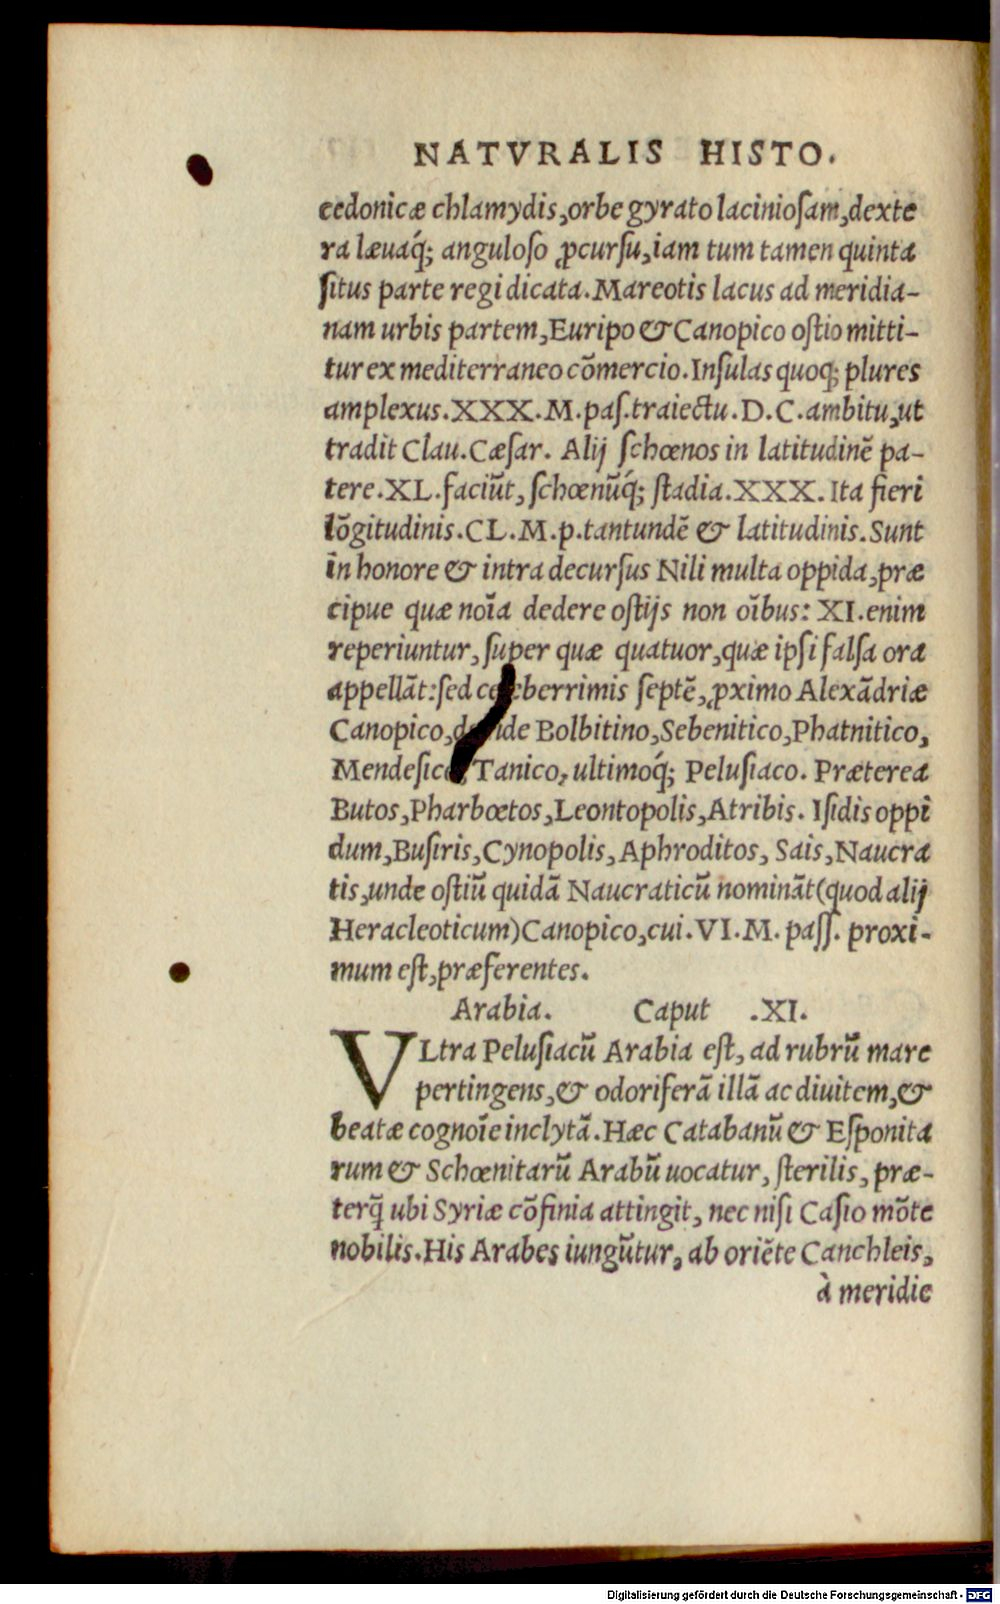 NATVRALIS HISTO.
cedonicæ chlamydis, orbe gyrato laciniosam, dexte
ra læuaq́; anguloso ꝓcursu, iam tum tamen quinta
situs parte regi dicata. Mareotis lacus ad meridia-
nam urbis partem, Euripo & Canopico ostio mitti-
tur ex mediterraneo cõmercio. Insulas quoq; plures
amplexus. XXX. M. pas. traiectu. D. C. ambitu, ut
tradit Clau. Cæsar. Alij schœnos in latitudinẽ pa-
tere. XL. faciũt, schœnũq́; stadia. XXX. Ita fieri
lõgitudinis. CL. M. p. tantundẽ & latitudinis. Sunt
in honore & intra decursus Nili multa oppida, præ
cipue quæ noĩa dedere ostijs non oĩbus: XI. enim
reperiuntur, super quæ quatuor, quæ ipsi falsa ora
appellãt: sed berrimis septẽ, ꝓximo Alexãdriæ
Canopico, Bolbitino, Sebenitico, Phatnitico,
Mendesico, Tanico, ultimoq́; Pelusiaco. Præterea
Butos, Pharbœtos, Leontopolis, Atribis. Isidis oppi
dum, Busiris, Cynopolis, Aphroditos, Sais, Naucra
tis, unde ostiũ quidã Naucraticũ nominãt (quod alij
Heracleoticum) Canopico, cui. VI. M. pass. proxi-
mum est, præferentes.
Arabia. Caput .XI.
VLtra Pelusiacũ Arabia est, ad rubrũ mare
pertingens, & odoriferã illã ac diuitem, &
beatæ cognoĩe inclytã. Hæc Catabanũ & Esponita
rum & Schœnitarũ Arabũ uocatur, sterilis, præ-
terq̃ ubi Syriæ cõfinia attingit, nec nisi Casio mõte
nobilis. His Arabes iungũtur, ab oriẽte Canchleis,
à meridie
Digitalisierung gefördert durch die Deutsche Forschungsgemeinschaft - DFG